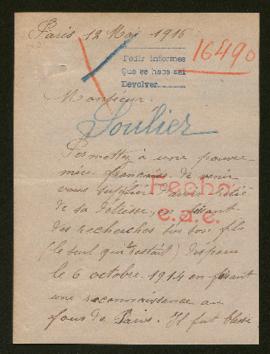 Paris 12 Mai 1916
16490
Pedir informes
Que se hace así
Devolver
Monsieur
Soulier
Permettez à une pauvre
mère française de venir
vous supplier d'avoir pitié
de sa détresse, en faisant
des recherches sur son fils
(le seul qui restait) disparu
le 6 octobre 1914 en faisant
une reconnaissance au
four de Paris. Il fut blessé
Hecho